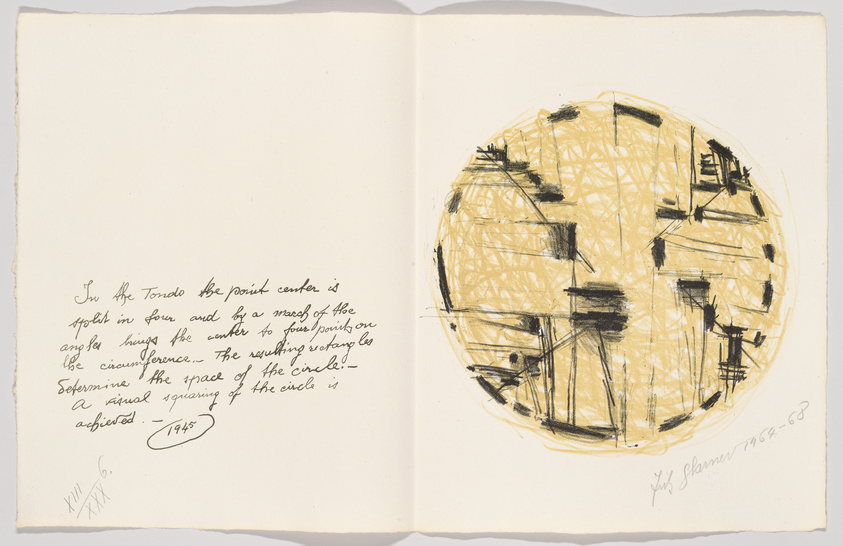 In the Tondo the point center is
split in four and by a march of the
angles brings the center to four points on
the circumference. — The resulting rectangles
determine the space of the circle. —
A visual squaring of the circle is
achieved. —
1945
XIII/XXX 6.
Fritz Glarner 1964-68